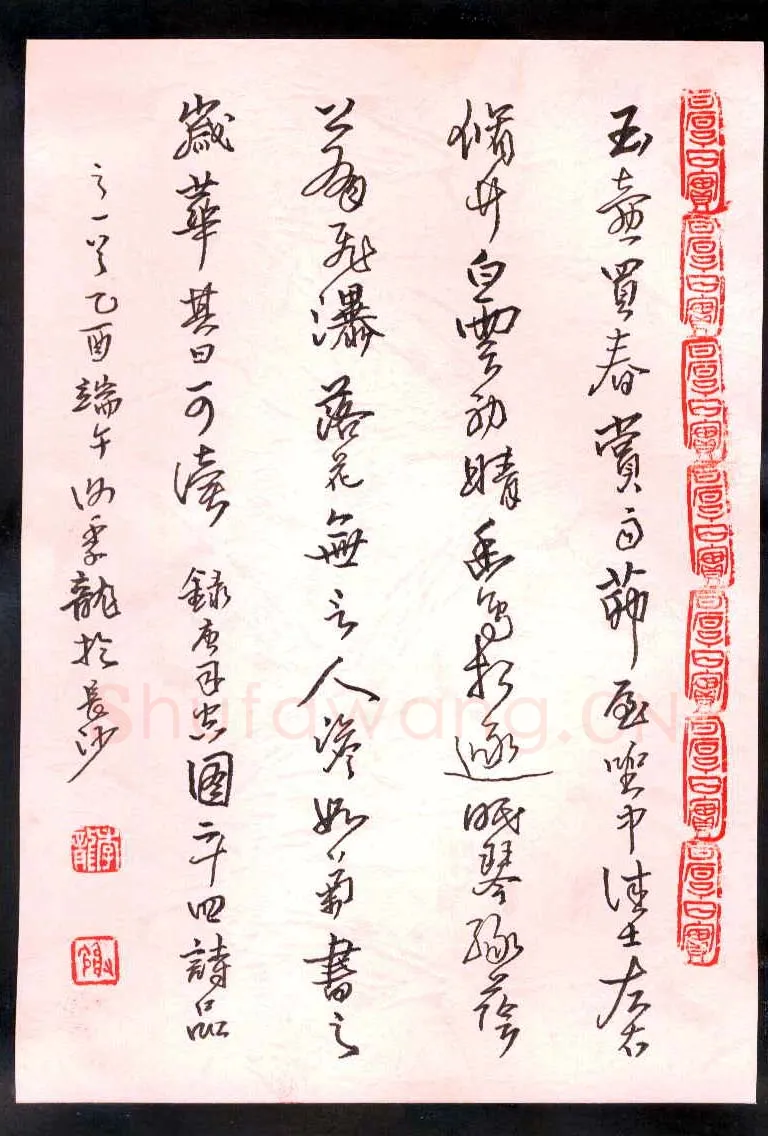 玉壺買春賞雨茆屋坐中佳士左右
脩竹白雲初晴幽鳥相逐眠琴綠蔭
上有飛瀑落花無言人澹如菊書之
歲華其曰可讀 錄唐司空圖二十四詩品
之一乙酉端午季龍於長沙
Shufawang.CN